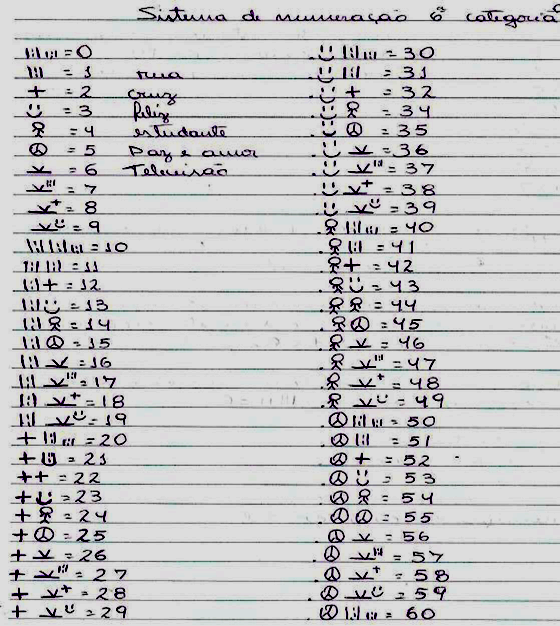 Sistema de numeração 6ª categoria
= 0
= 1 rua
+ = 2 cruz
= 3 feliz
= 4 estudante
= 5 Paz e amor
= 6 Televisão
= 7
+ = 8
= 9
= 10
= 11
+ = 12
= 13
= 14
= 15
= 16
= 17
+ = 18
= 19
+ = 20
+ = 21
++ = 22
+ = 23
+ = 24
+ = 25
+ = 26
+ = 27
+ + = 28
+ = 29
= 30
= 31
+ = 32
= 34
= 35
= 36
= 37
+ = 38
= 39
= 40
= 41
+ = 42
= 43
= 44
= 45
= 46
= 47
+ = 48
= 49
= 50
= 51
+ = 52
= 53
= 54
= 55
= 56
= 57
+ = 58
= 59
= 60